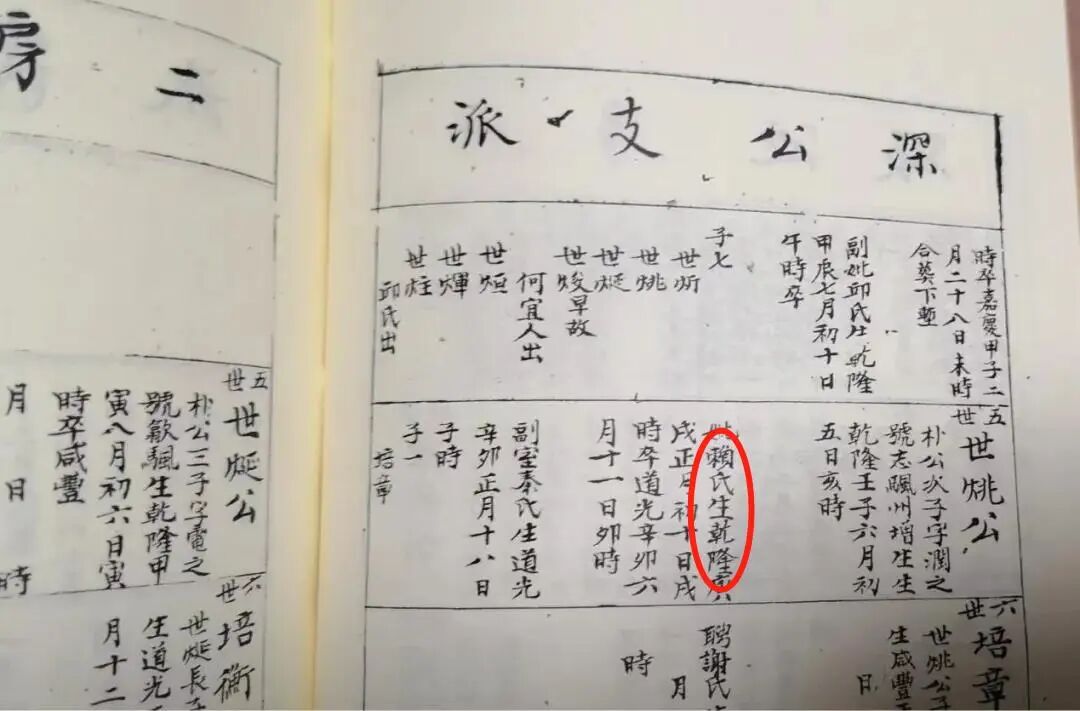 深公支派
時卒嘉慶甲子二
月二十八日未時
合葬下塹
副妣邱氏生乾隆
甲辰七月初十日
午時卒
子七
世炘
世烑
世烻
世焌早故
何宜人出
世烜
世煇
世炷
邱氏出
五世
世烑公
朴公次子字潤之
號志颿州增生生
乾隆壬子六月初
五日亥時
妣賴氏生乾隆
戌正月初十日戌
時卒道光辛卯六
月十一日卯時
副室秦氏生道光
辛卯正月十八日
子時
子一
培章
六世
培章
世烑公子
生咸豐
日
聘謝氏
月
時
二房
五世
世烻公
朴公三子字電之
號歗颿生乾隆甲
寅八月初六日寅
時卒咸豐
月日時
六世
培衡
世烻長
生道光
月十二